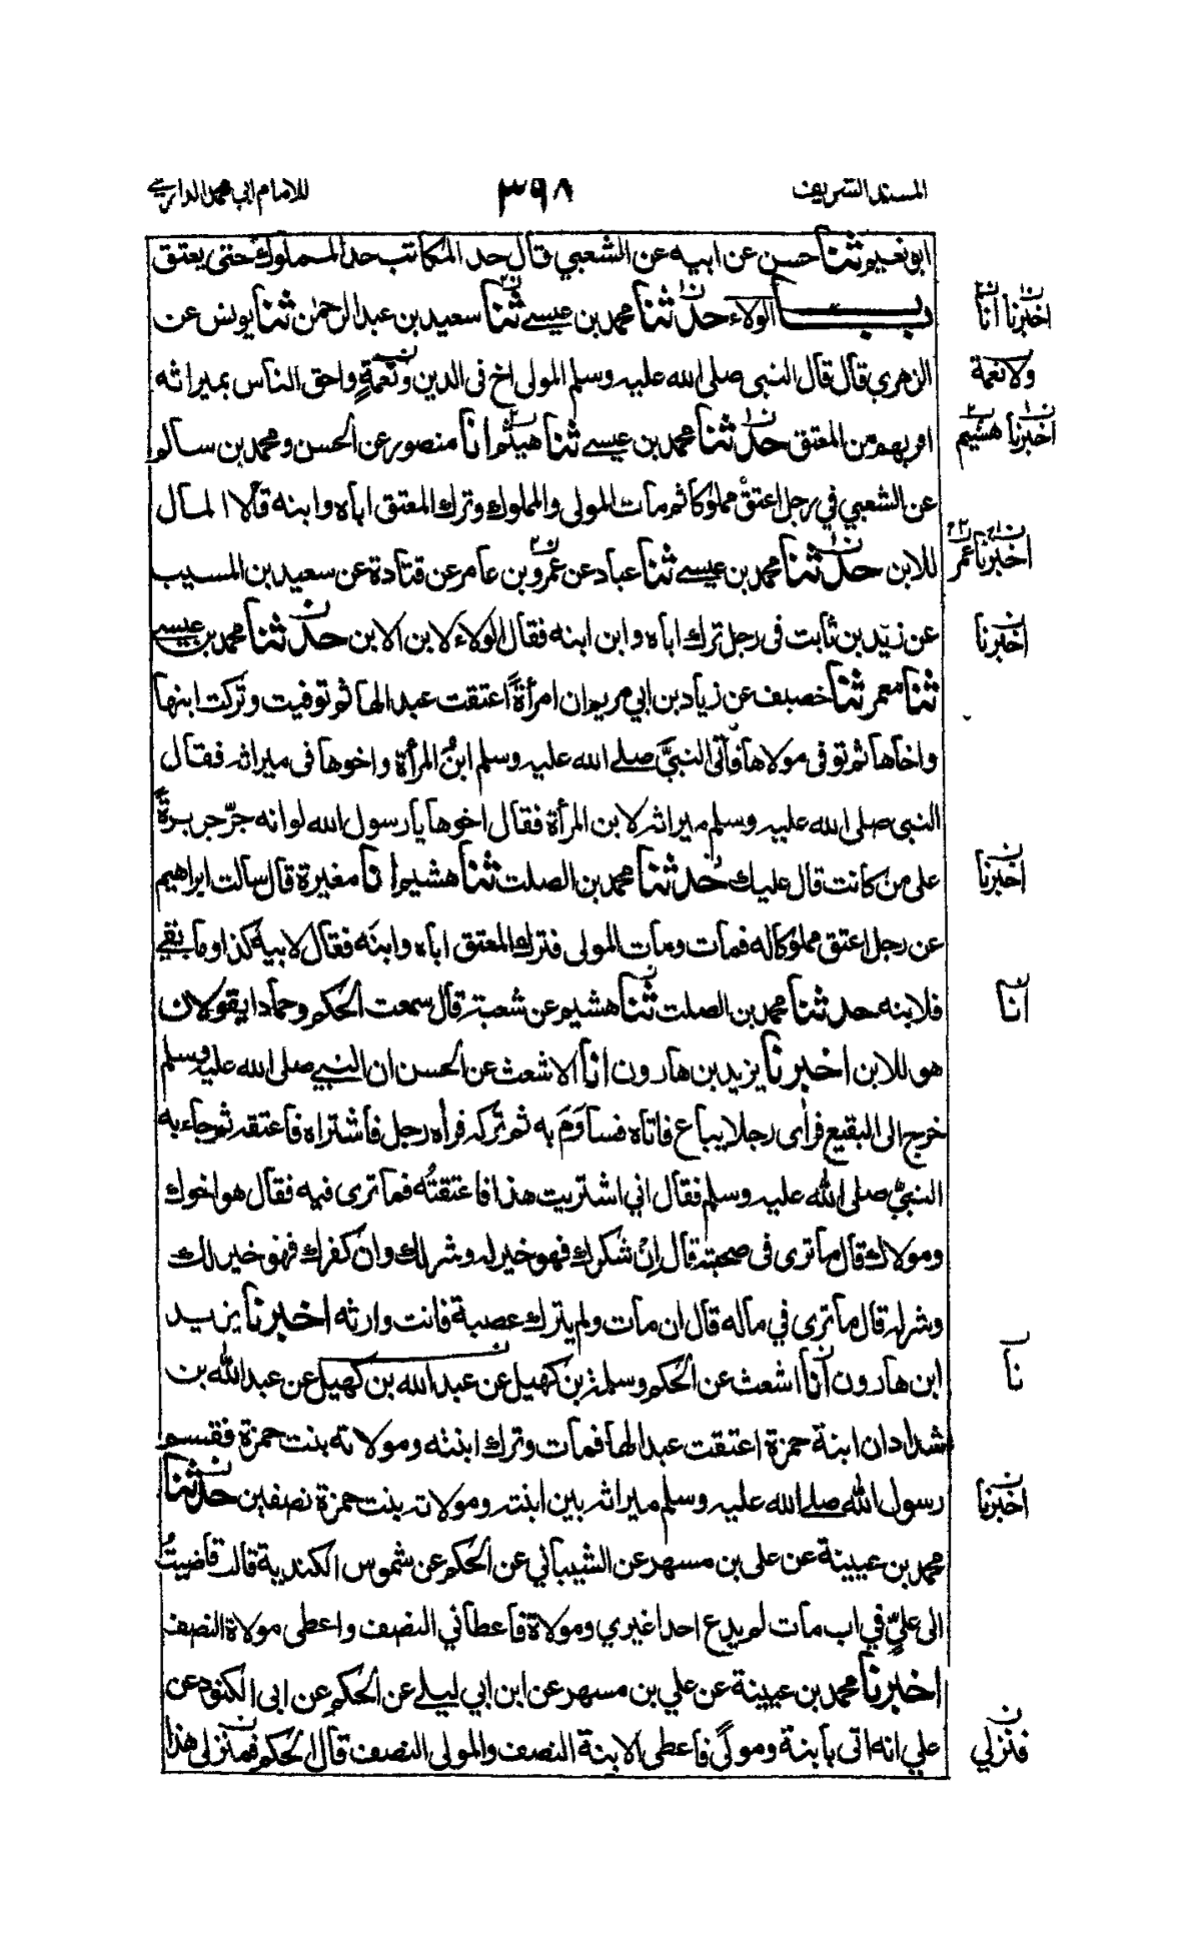 المسند الشريف ٣٩٨ للامام ابي محمد الدارمي
ابو نعيم ثنا حسن عن ابيه عن الشعبي قال حد المكاتب حد المملوك حتى يعتق
باب الولاء حدثنا محمد بن عيسى ثنا سعيد بن عبد الرحمن ثنا يونس عن
اخبرنا انا
الزهري قال قال النبي صلى الله عليه وسلم المولى اخ في الدين ونعمة واحق الناس بميراثه
ولا نعمة
اقربهم من المعتق حدثنا محمد بن عيسى ثنا هيثم انا منصور عن الحسن ومحمد بن سالم
اخبرنا هشيم
عن الشعبي في رجل اعتق مملوكا ثم مات المولى والمملوك وترك المعتق اباه وابنه قالا المال
للابن حدثنا محمد بن عيسى ثنا عباد عن عمرو بن عامر عن قتادة عن سعيد بن المسيب
اخبرنا عمر
عن زيد بن ثابت في رجل ترك اباه وابن ابنه فقال الولاء لابن الابن حدثنا محمد بن عيسى
اخبرنا
ثنا معمر ثنا خصيف عن زياد بن ابي مريم ان امرأة اعتقت عبدا لها ثم توفيت وتركت ابنها
واخاها ثم توفي مولاها فأتى النبي صلى الله عليه وسلم ابن المرأة واخوها في ميراثه فقال
النبي صلى الله عليه وسلم ميراثه لابن المرأة فقال اخوها يا رسول الله لو انه جرّ جريرة
على من كانت قال عليك حدثنا محمد بن الصلت ثنا هشيم انا مغيرة قال سالت ابراهيم
اخبرنا
عن رجل اعتق مملوكا له فمات ومات المولى فترك المعتق اباه وابنه فقال لابيه كذا وما بقي
فلابنه حدثنا محمد بن الصلت ثنا هشيم عن شعبة قال سمعت الحكم وحمادا يقولان
انا
هو للابن اخبرنا يزيد بن هارون انا الاشعث عن الحسن ان النبي صلى الله عليه وسلم
خرج الى البقيع فرأى رجلا يباع فاتاه فساوَمَ به ثم تركه فرأه رجل فاشتراه فاعتقه ثم جاء به
النبيّ صلى الله عليه وسلم فقال اني اشتريت هذا فاعتقتُه فما ترى فيه فقال هو اخوك
ومولاك قال ما ترى في صحبته قال اِنْ شكرك فهو خير له وشر لك وان كفرك فهو خير لك
وشر له قال ما ترى في ماله قال ان مات ولم يترك عصبة فانت وارثه اخبرنا يزيد
ابن هارون انا اشعث عن الحكم وسلمة بن كهيل عن عبد الله بن كهيل عن عبد الله بن
نا
شداد ان ابنة حمزة اعتقت عبدا لها فمات وترك ابنته ومولاته بنت حمزة فقسم
رسول الله صلى الله عليه وسلم ميراثه بين ابنته ومولاته بنت حمزة نصفين حدثنا
اخبرنا
محمد بن عيينة عن علي بن مسهر عن الشيباني عن الحكم عن شموس الكندية قالت قاضيتُ
الى عليّ في اب مات لم يدع احدا غيري ومولاة فاعطاني النصف واعطى مولاة النصف
اخبرنا محمد بن عيينة عن علي بن مسهر عن ابن ابي ليلى عن الحكم عن ابي الكنود عن
علي انه اتى بابنة ومولى فاعطى الابنة النصف والمولى النصف قال الحكم فمنزلي هذا
فنزلي